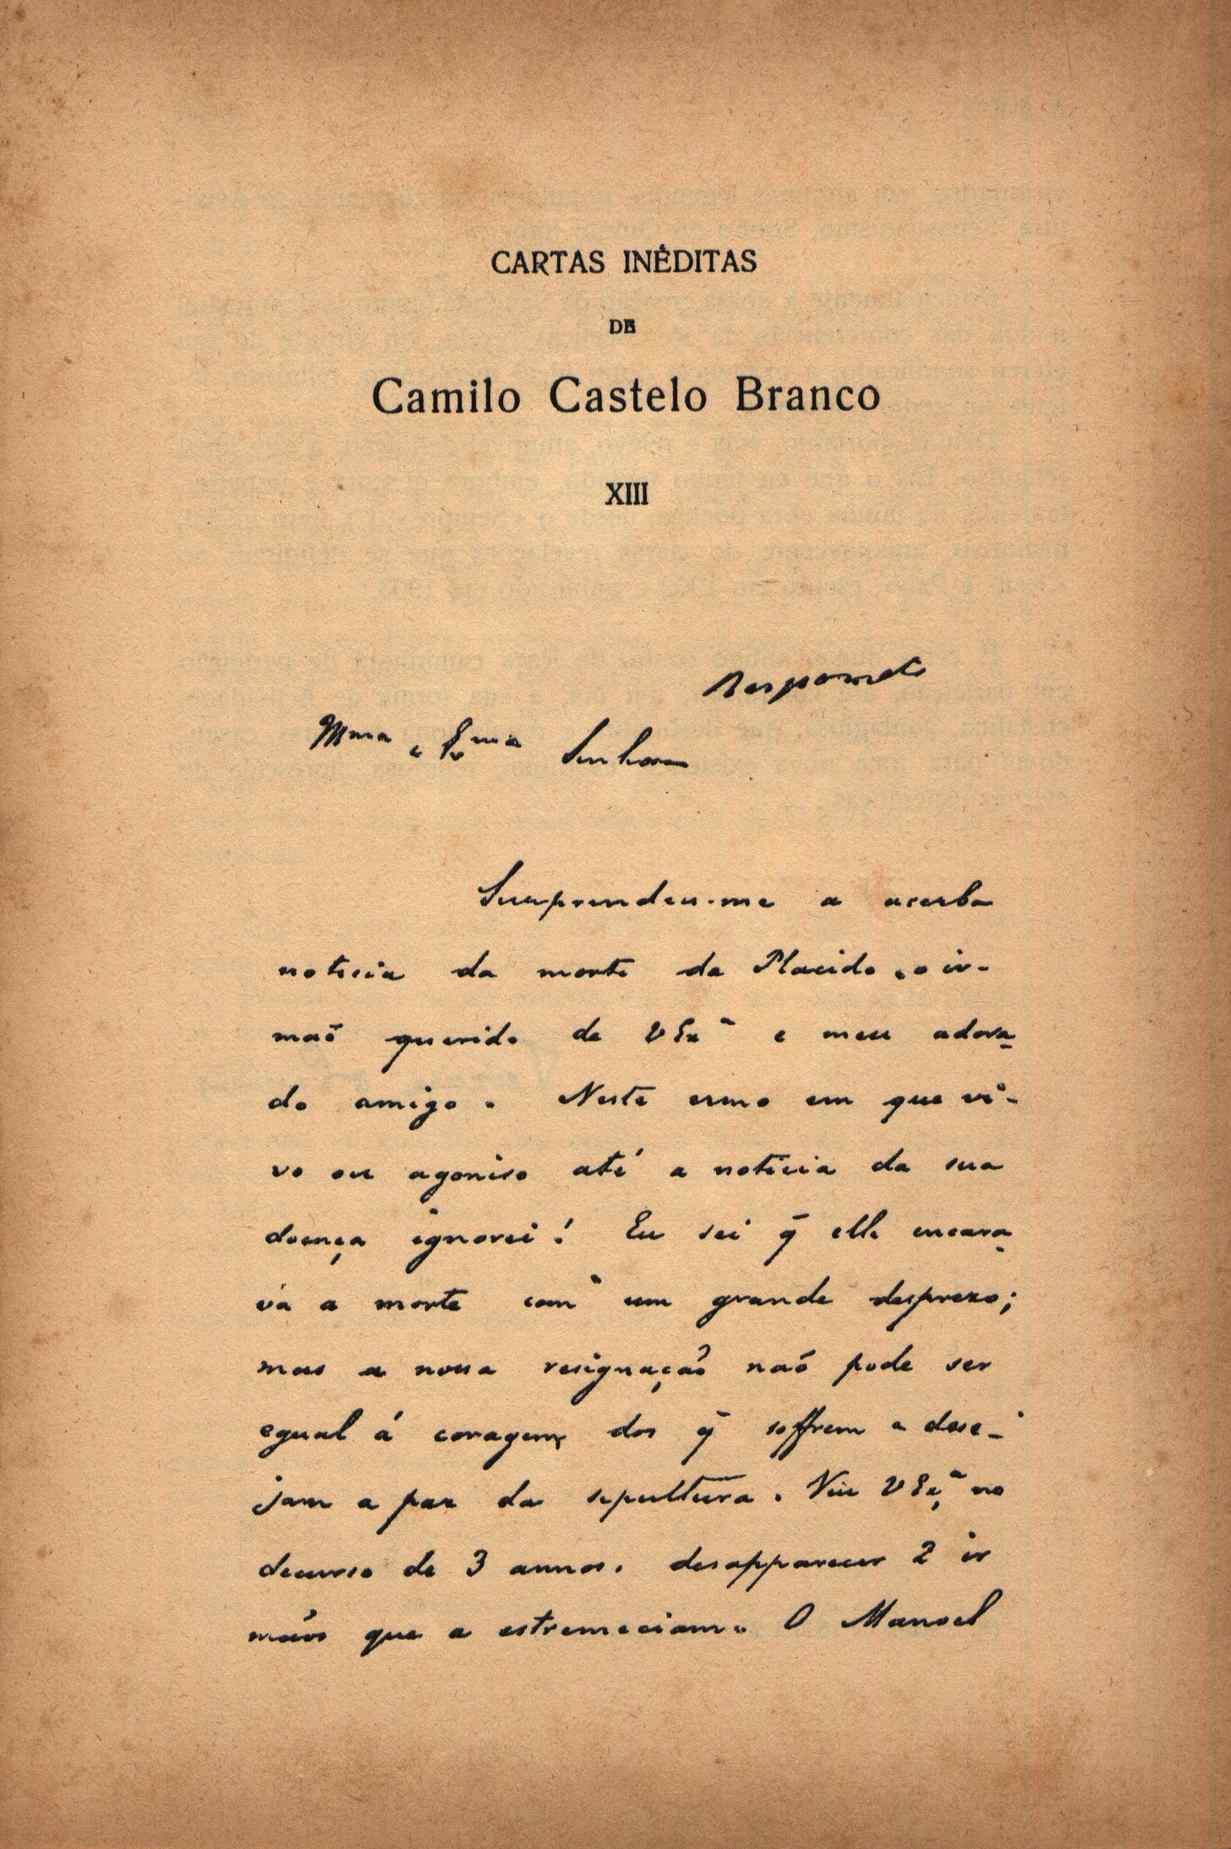 CARTAS INÉDITAS
DE
Camilo Castelo Branco
XIII
Illma e Exma Senhora
Surprendeu-me a acerba
noticia da morte do Placido, o ir-
maõ querido de V Exa e meu adora-
do amigo. Neste ermo em que vi-
vo ou agoniso até a noticia da sua
doença ignorei! Eu sei q̃ elle encara-
va a morte com um grande despreso;
mas a nossa resignaçaõ naõ pode ser
egual á coragem dos q̃ soffrem e dese-
jam a paz da sepultura. Viu V Exa no
decurso de 3 annos, desapparecer 2 ir
mãos que a estremeciam. O Manoel